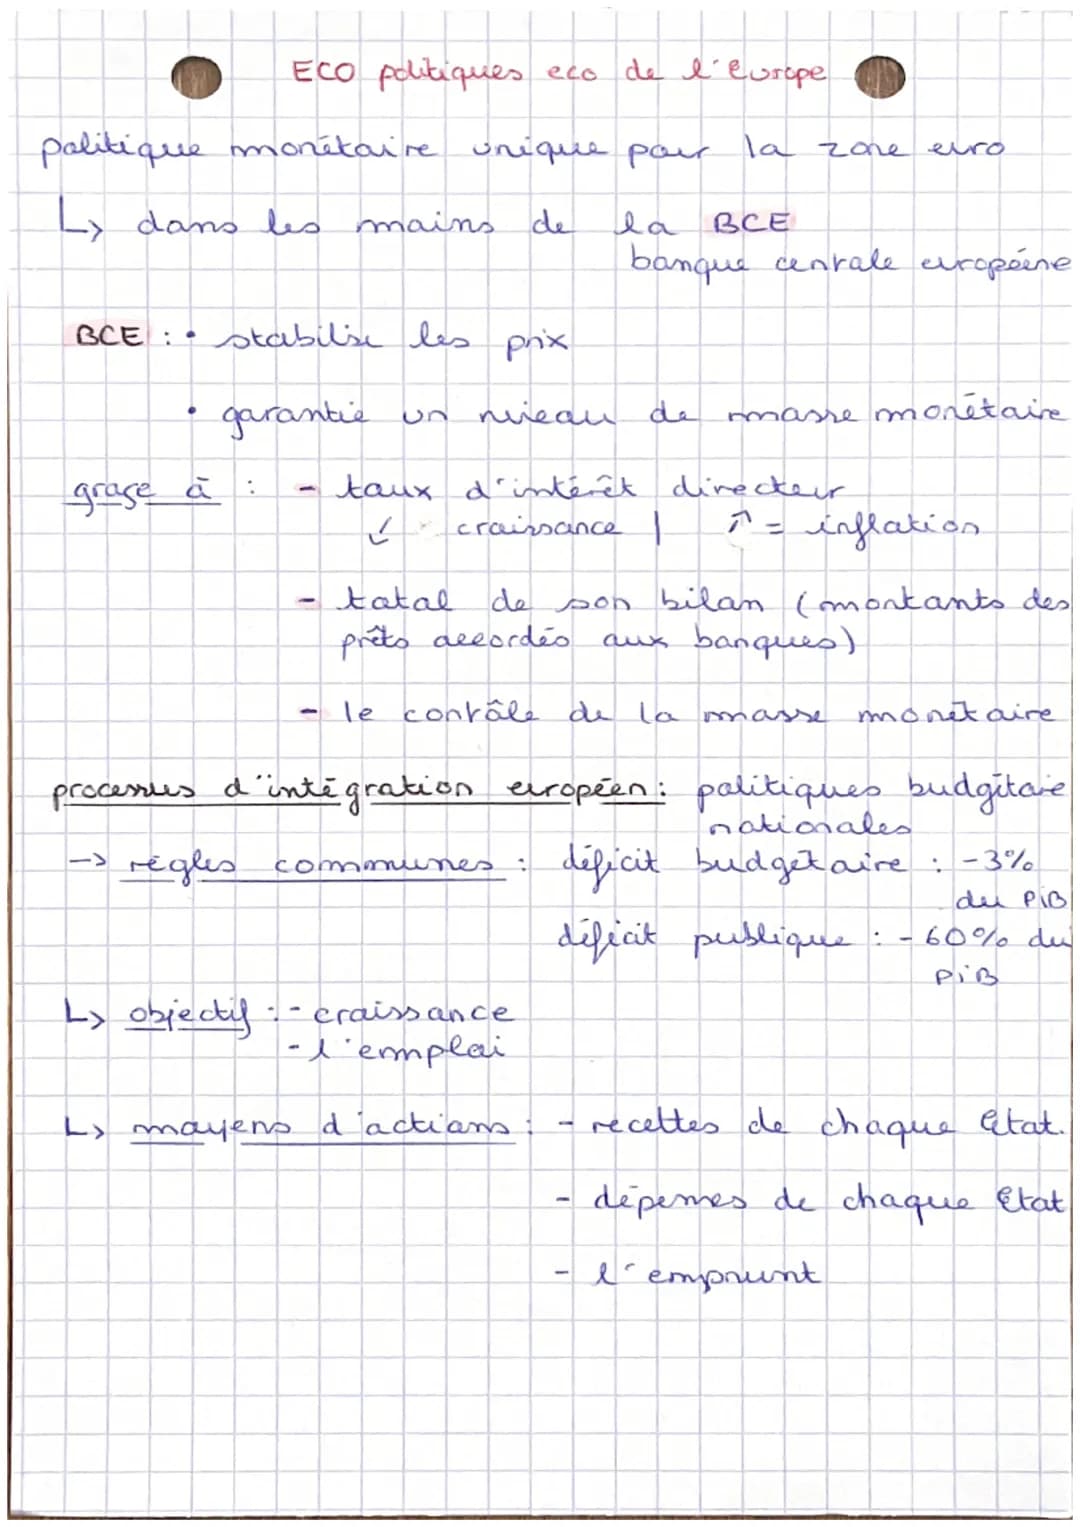 ECO politiques eco de l'Europe
politique monétaire unique pour la zone euro
↳ dans les mains de la BCE
banque centrale européene
BCE : • stabilise les prix
• garantie un niveau de masse monétaire
graçe à : - taux d'intérêt directeur
↙ croissance | ↗ = inflation
- total de son bilan (montants des
prêts accordés aux banques)
- le contrôle de la masse monétaire
processus d'intégration européen : politiques budgétaire
nationales
-> règles communes : déficit budgétaire : -3%
du PiB
déficit publique : - 60% du
PiB
↳ objectif : - croissance
- l'emploi
↳ moyens d'actions : - recettes de chaque Etat.
- dépenses de chaque Etat
- l'emprunt